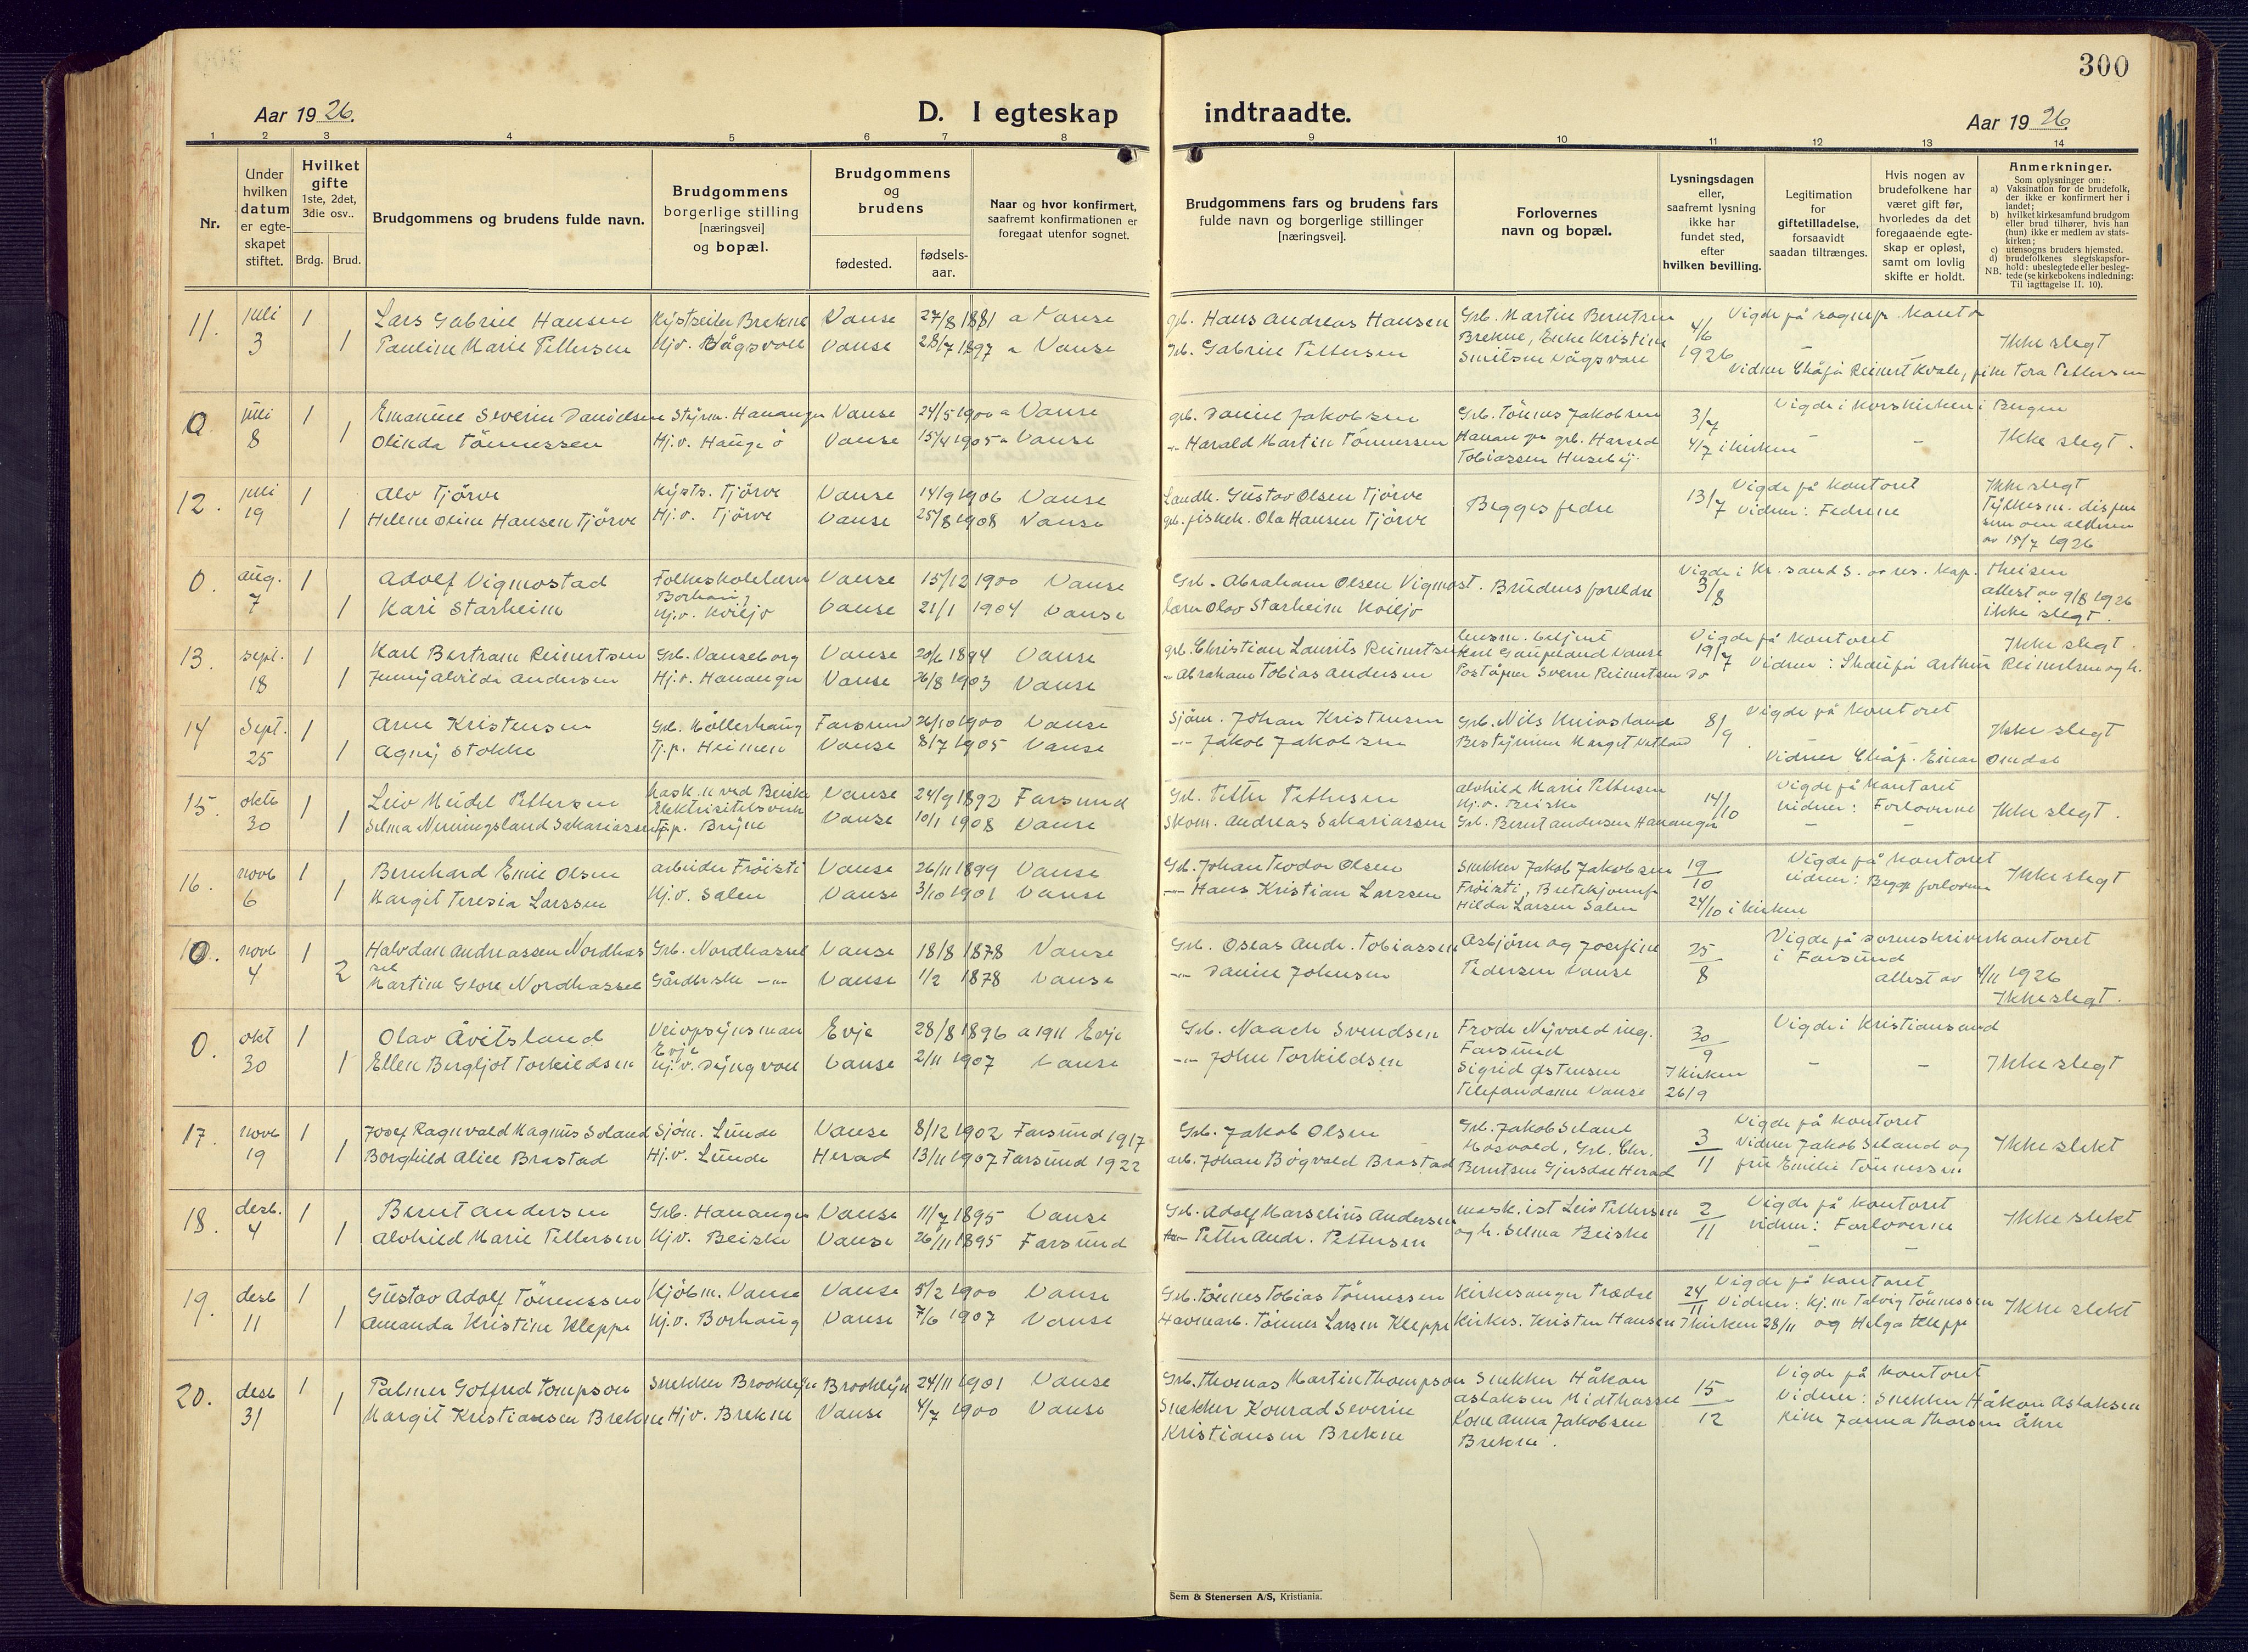 300
Aar 1926.
D. I egteskap indtraadte.
Aar 1926.
1 2 3 4 5 6 7 8 9 10 11 12 13 14
Nr.
Under hvilken datum er egteskapet stiftet.
Hvilket gifte 1ste, 2det, 3die osv..
Brdg. Brud.
Brudgommens og brudens fulde navn.
Brudgommens borgerlige stilling [næringsvei] og bopæl.
Brudgommens og brudens
fødested.
fødsels-aar.
Naar og hvor konfirmert, saafremt konfirmationen er foregaat utenfor sognet.
Brudgommens fars og brudens fars fulde navn og borgerlige stillinger [næringsvei].
Forlovernes navn og bopæl.
Lysningsdagen eller, saafremt lysning ikke har fundet sted, efter hvilken bevilling.
Legitimation for giftetilladelse, forsaavidt saadan tiltrænges.
Hvis nogen av brudefolkene har været gift før, hvorledes da det foregaaende egteskap er opløst, samt om lovlig skifte er holdt.
Anmerkninger.
Som oplysninger om:
a) Vaksination for de brudefolk, der ikke er konfirmert her i landet;
b) hvilket kirkesamfund brudgom eller brud tilhører, hvis han (hun) ikke er medlem av statskirken;
c) utensogns bruders hjemsted.
d) brudefolkenes slegtskapsforhold: ubeslegtede eller beslegtede (se kirkebokens indledning: Til iagttagelse II. 10).
NB.
11. juli 3 1 Lars Gabriel Hansen Brekne Vanse 27/8 1881 a Vanse grb. Hans Andreas Hansen Grb. Martin Berntsen 4/6 Vigde på
1 Pauline Marie Pettersen Hj.v. Vågsvoll Vanse 28/7 1897 a Vanse Grb. Gabriel Pettersen Brekne, Enke Kristine Vågsvoll 1926 Ikke slegt
Vidner Reinert Kvale, Tora Pettersen
0 juli 8 1 Emanuel Severin Danielsen Styrm. Hananger Vanse 24/5 1900 a Vanse grb. Daniel Jakobsen Grb. Tönnes Jakobsen 3/7 Vigde i Korskirken i Bergen
1 Olinda Tönnessen Hj.v. Haugö Vanse 15/4 1905 a Vanse -"- Harald Martin Tönnessen Hananger grb. Harald 4/7 i kirken - Ikke slegt.
Tobiassen Huseby.
12. juli 19 1 Alv Tjörve Tjörve Vanse 14/9 1906 Vanse Landh. Gustav Olsen Tjörve Begges fedre 13/7 Vigde på kontoret Ikke slegt
1 Helene Oline Hansen Tjörve Hj.v. Tjörve Vanse 25/8 1908 Vanse grb. fiskeh. Ola Hansen Tjörve Vidner: Fedrene Fylkesm. dispen
sasjon om alderen
av 15/7 1926
0. aug. 7 1 Adolf Vigmostad Folkeskolelærer Borhaug Vanse 15/12 1900 Vanse Grb. Abraham Olsen Vigmost. Brudens foreldre 3/8 Vigde i Kr.sand S. av res. kap. Theisen
1 Kari Starheim Hj.v. Kviljo Vanse 21/1 1904 Vanse lærer Olav Starheim Kviljo attest av 9/8 1926
ikke slegt.
13. sept. 18 1 Karl Bertram Reinertsen Grb. Vanseborg Vanse 20/6 1894 Vanse grb. Christian Laurits Reinertsen lensm. betjent Karl Gaupeland Vanse 19/7 Vigde på kontoret Ikke slegt.
1 Jenny Alvilde Andersen Hj.v. Hananger Vanse 26/8 1903 Vanse -"- Abraham Tobias Andersen Poståpner Sverre Reinertsen do Vidner: Arthur Reinertsen og h.
14 Sept. 25 1 Arne Kristensen Grb. Möllerhaug Farsund 26/10 1900 Vanse Sjöm. Johan Kristensen Grb. Nils 8/9 Vigde på kontoret Ikke slegt
1 Agny Stokke Tj.p. Heimen Vanse 8/7 1905 Vanse -"- Jakob Jakobsen Bestyrinne Margit Vetland Vidner Einar Omdal
15. oktb 30 1 Leiv Meidel Pettersen ved Beiske Elektrisitetsverk Vanse 24/9 1892 Farsund Grb. Petter Pettersen Alvhild Marie Pettersen Hj.v. Beiske 14/10 Vigde på kontoret
1 Selma Nenningsland Sakariassen Tj.p. Bryne Vanse 10/1 1908 Vanse Skom. Andreas Sakariassen Grb. Bernt Andersen Hananger vidner: Forloverne Ikke slegt.
16. novb 6 1 Bernhard Emil Olsen arbeider Fröisti Vanse 26/11 1899 Vanse Grb. Johan Teodor Olsen Snekker Jakob Jakobsen 19/10 Vigde på kontoret
1 Margit Teresia Larssen Hj.v. Salen Vanse 3/10 1901 Vanse -"- Hans Kristian Larssen Fröisti, Hilda Larsen Salen 24/10 i kirken vidner: Begge forloverne Ikke slegt
0. novb 4 1 Halvdan Andreassen Nordhassel Grb. Nordhassel Vanse 18/8 1878 Vanse Grb. Oseas Andr. Tobiassen Asbjörn og Josefine 25/8 Vigde på sorenskriverkontoret i Farsund
2 Martine Glore Nordhassel Gårdbrske -"- Vanse 1/2 1878 Vanse -"- Daniel Johnsen Pedersen Vanse attest av 4/11 1926
Ikke slegt.
0. okt 30 1 Olav Åvitsland Veiopsynsman Evje Evje 28/8 1896 a 1911 Evje Grb. Noach Svendsen Frode Nyvold ing. Farsund 30/9 Vigde i Kristiansand
1 Ellen Bergljot Torkildsen Hj.v. Dyngvoll Vanse 2/11 1907 Vanse -"- John Torkildsen Sigrid Østensen I kirken - - Ikke slegt
Telefondame Vanse 26/9
17. novb 19 1 Josef Ragnvald Magnus Seland Sjöm. Lunde Vanse 8/12 1902 Farsund 1917 Grb. Jakob Olsen Grb. Jakob Seland 3/11 Vigde på kontoret
1 Borghild Alice Brastad Hj.v. Lunde Herad 13/11 1907 Farsund 1922 arb. Johan Bögvald Brastad Mosvold, Grb. Chr. Berntsen Gjersdal Herad vidner Jakob Seland og fru Emilie Tönnessen Ikke slekt
18. desb. 4 1 Bernt Andersen Grb. Hananger Vanse 11/7 1895 Vanse Grb. Adolf Marselius Andersen mask.ist Leiv Pettersen 2/11 Vigde på kontoret
1 Alvhild Marie Pettersen Hj.v. Beiske Vanse 26/11 1895 Farsund -"- Petter Andr. Pettersen og h. Selma Beiske vidner: Forloverne Ikke slekt
19. desb 11 1 Gustav Adolf Tönnessen Kjöbm. Vanse Vanse 5/2 1900 Vanse Grb. Tönnes Tobias Tönnessen Kirkesanger Trædal 24/11 Vigde på kontoret
1 Amanda Kristine Kleppe Hj.v. Borhaug Vanse 7/6 1907 Vanse Havnearb. Tönnes Larsen Kleppe Kirkes. Kristen Hansen I kirken 28/11 Vidner: Kj.m Tönnessen og Helga Kleppe Ikke slekt
20. desb 31 1 Palmer Gotfred Tompson Snekker Brooklyn Brooklyn 24/11 1901 Vanse Grb. Thomas Martin Thompson Snekker Håkon 15/12 Vigde på kontoret
1 Margit Kristiansen Brekne Hj.v. Brekne Vanse 4/7 1900 Vanse Snekker Konrad Severin Aslaksen Midthassel Vidner: Snekker Håkon Aslaksen
Kristiansen Brekne Kone Anna Jakobsen Brekne. Janna Thorsen Åhre
Sem & Stenersen A/S, Kristiania.